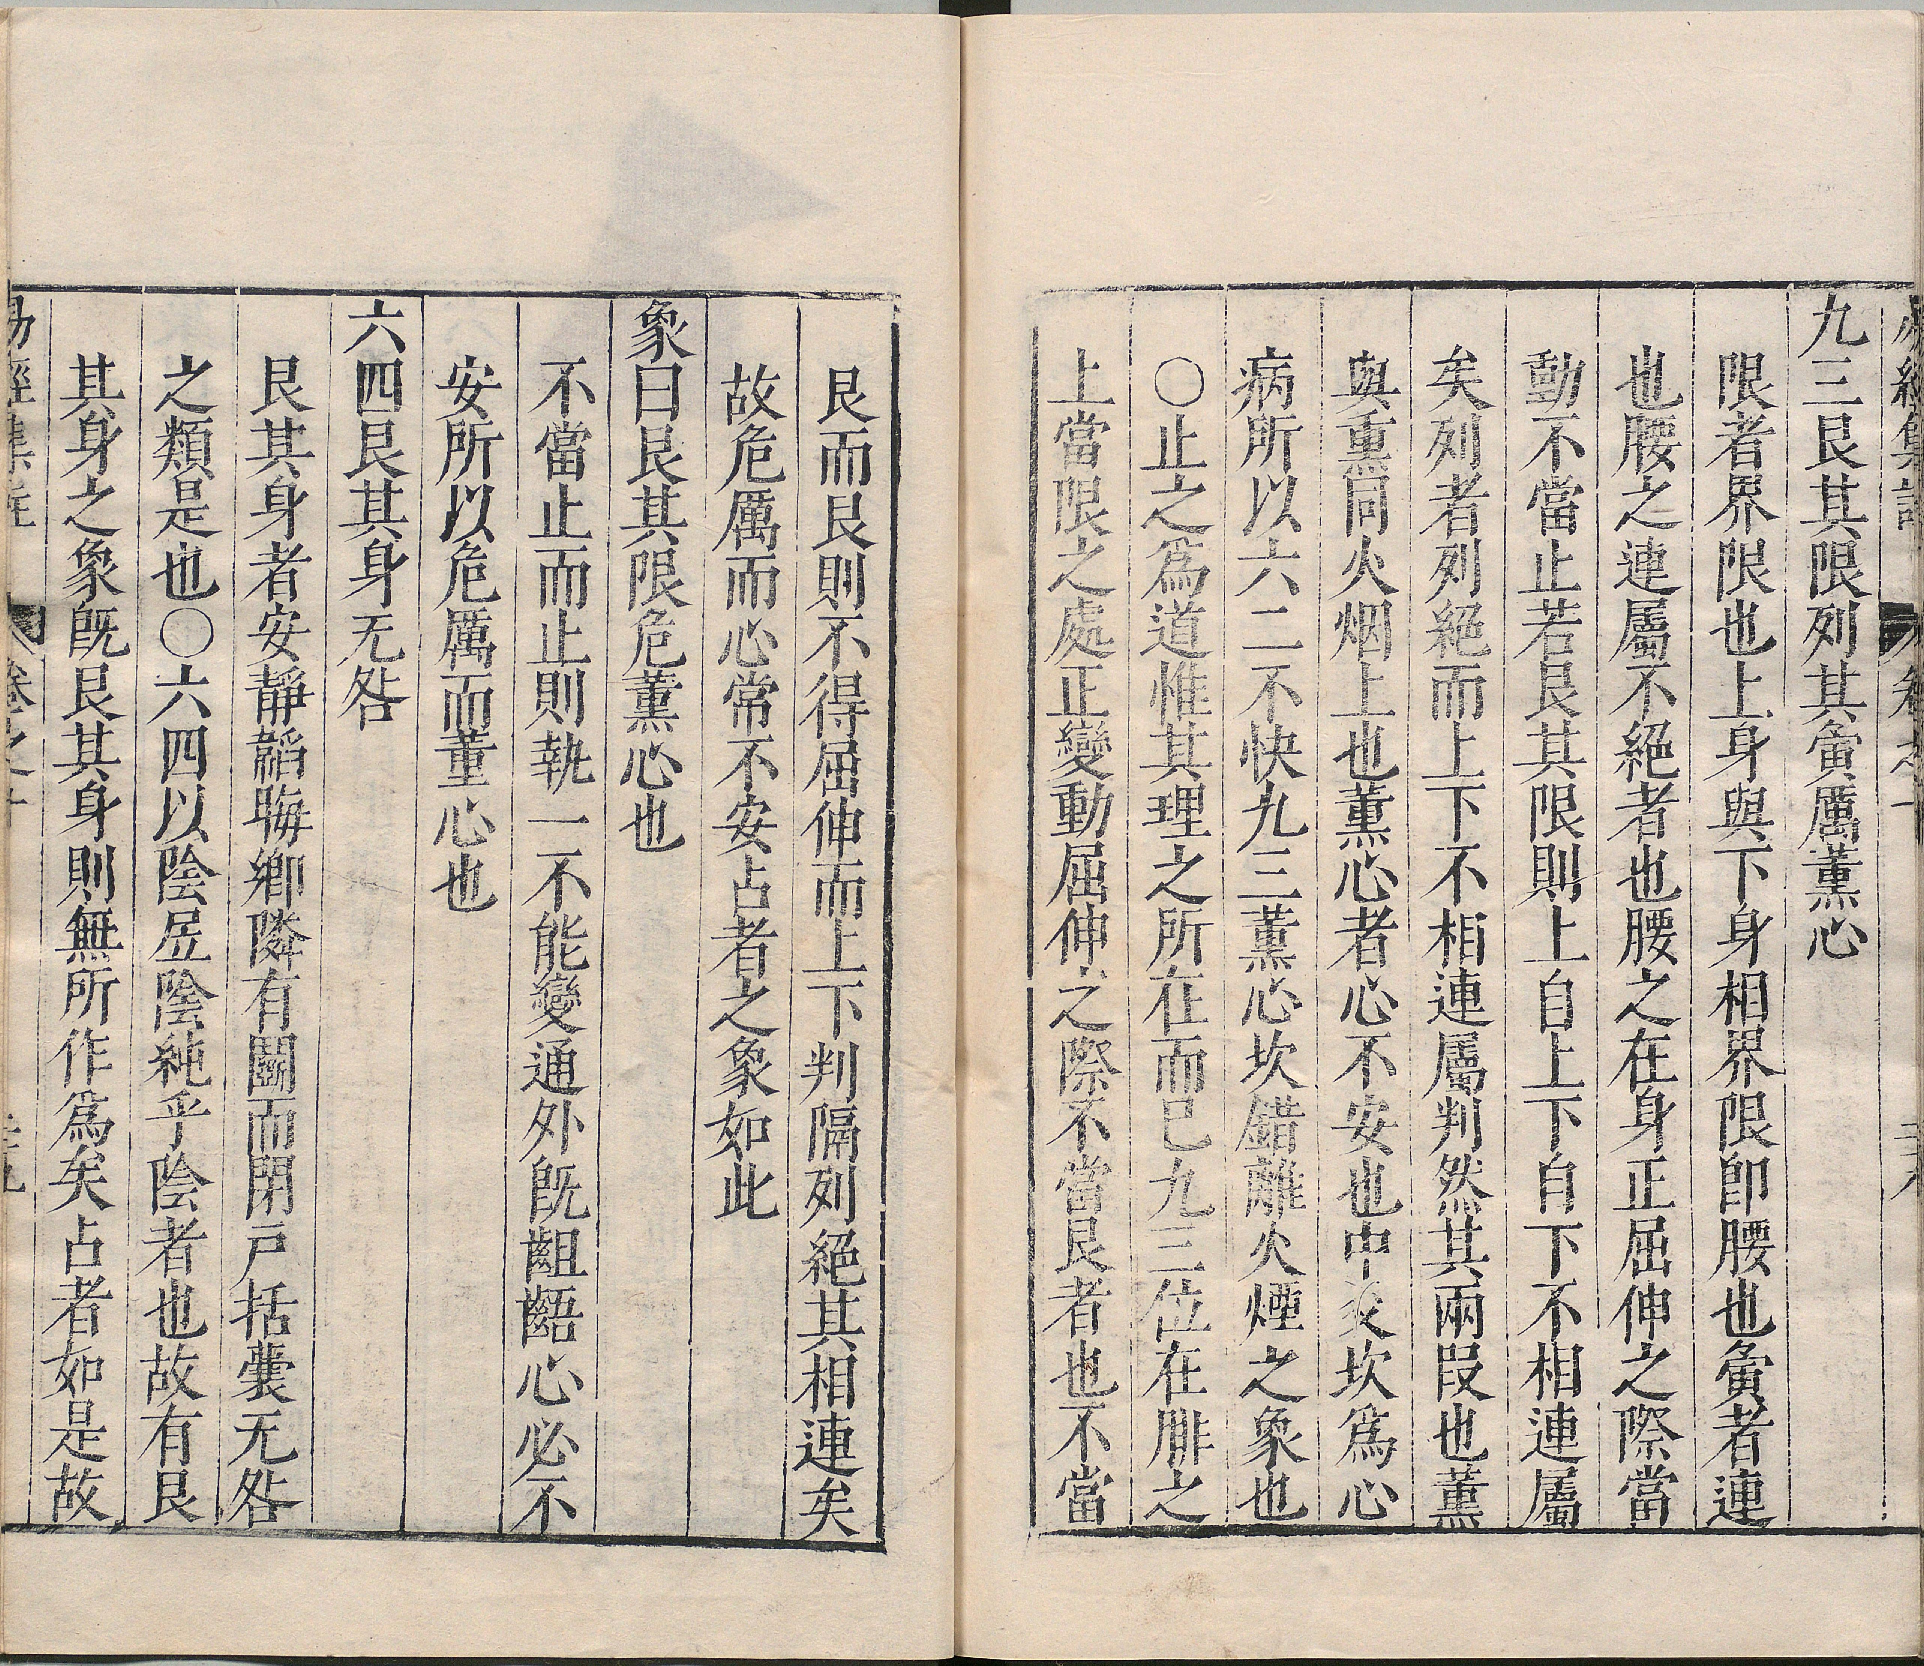 九三艮其限列其夤厲薰心
限者界限也上身與下身相界限卽腰也夤者連
也腰之連屬不絕者也腰之在身正屈伸之際當
動不當止若艮其限則上自上下自下不相連屬
矣列者列絕而上下不相連屬判然其兩段也薰
與熏同火烟上也薰心者心不安也中爻坎爲心
病所以六二不快九三薰心坎錯離火煙之象也
○止之爲道惟其理之所在而已九三位在腓之
上當限之處正變動屈伸之際不當艮者也不當
艮而艮則不得屈伸而上下判隔列絕其相連矣
故危厲而心常不安占者之象如此
象曰艮其限危薰心也
不當止而止則執一不能變通外旣齟齬心必不
安所以危厲而薰心也
六四艮其身无咎
艮其身者安靜韜晦鄉隣有鬭而閉戸括囊无咎
之類是也○六四以陰居陰純乎陰者也故有艮
其身之象旣艮其身則無所作爲矣占者如是故
易經集註
卷之十